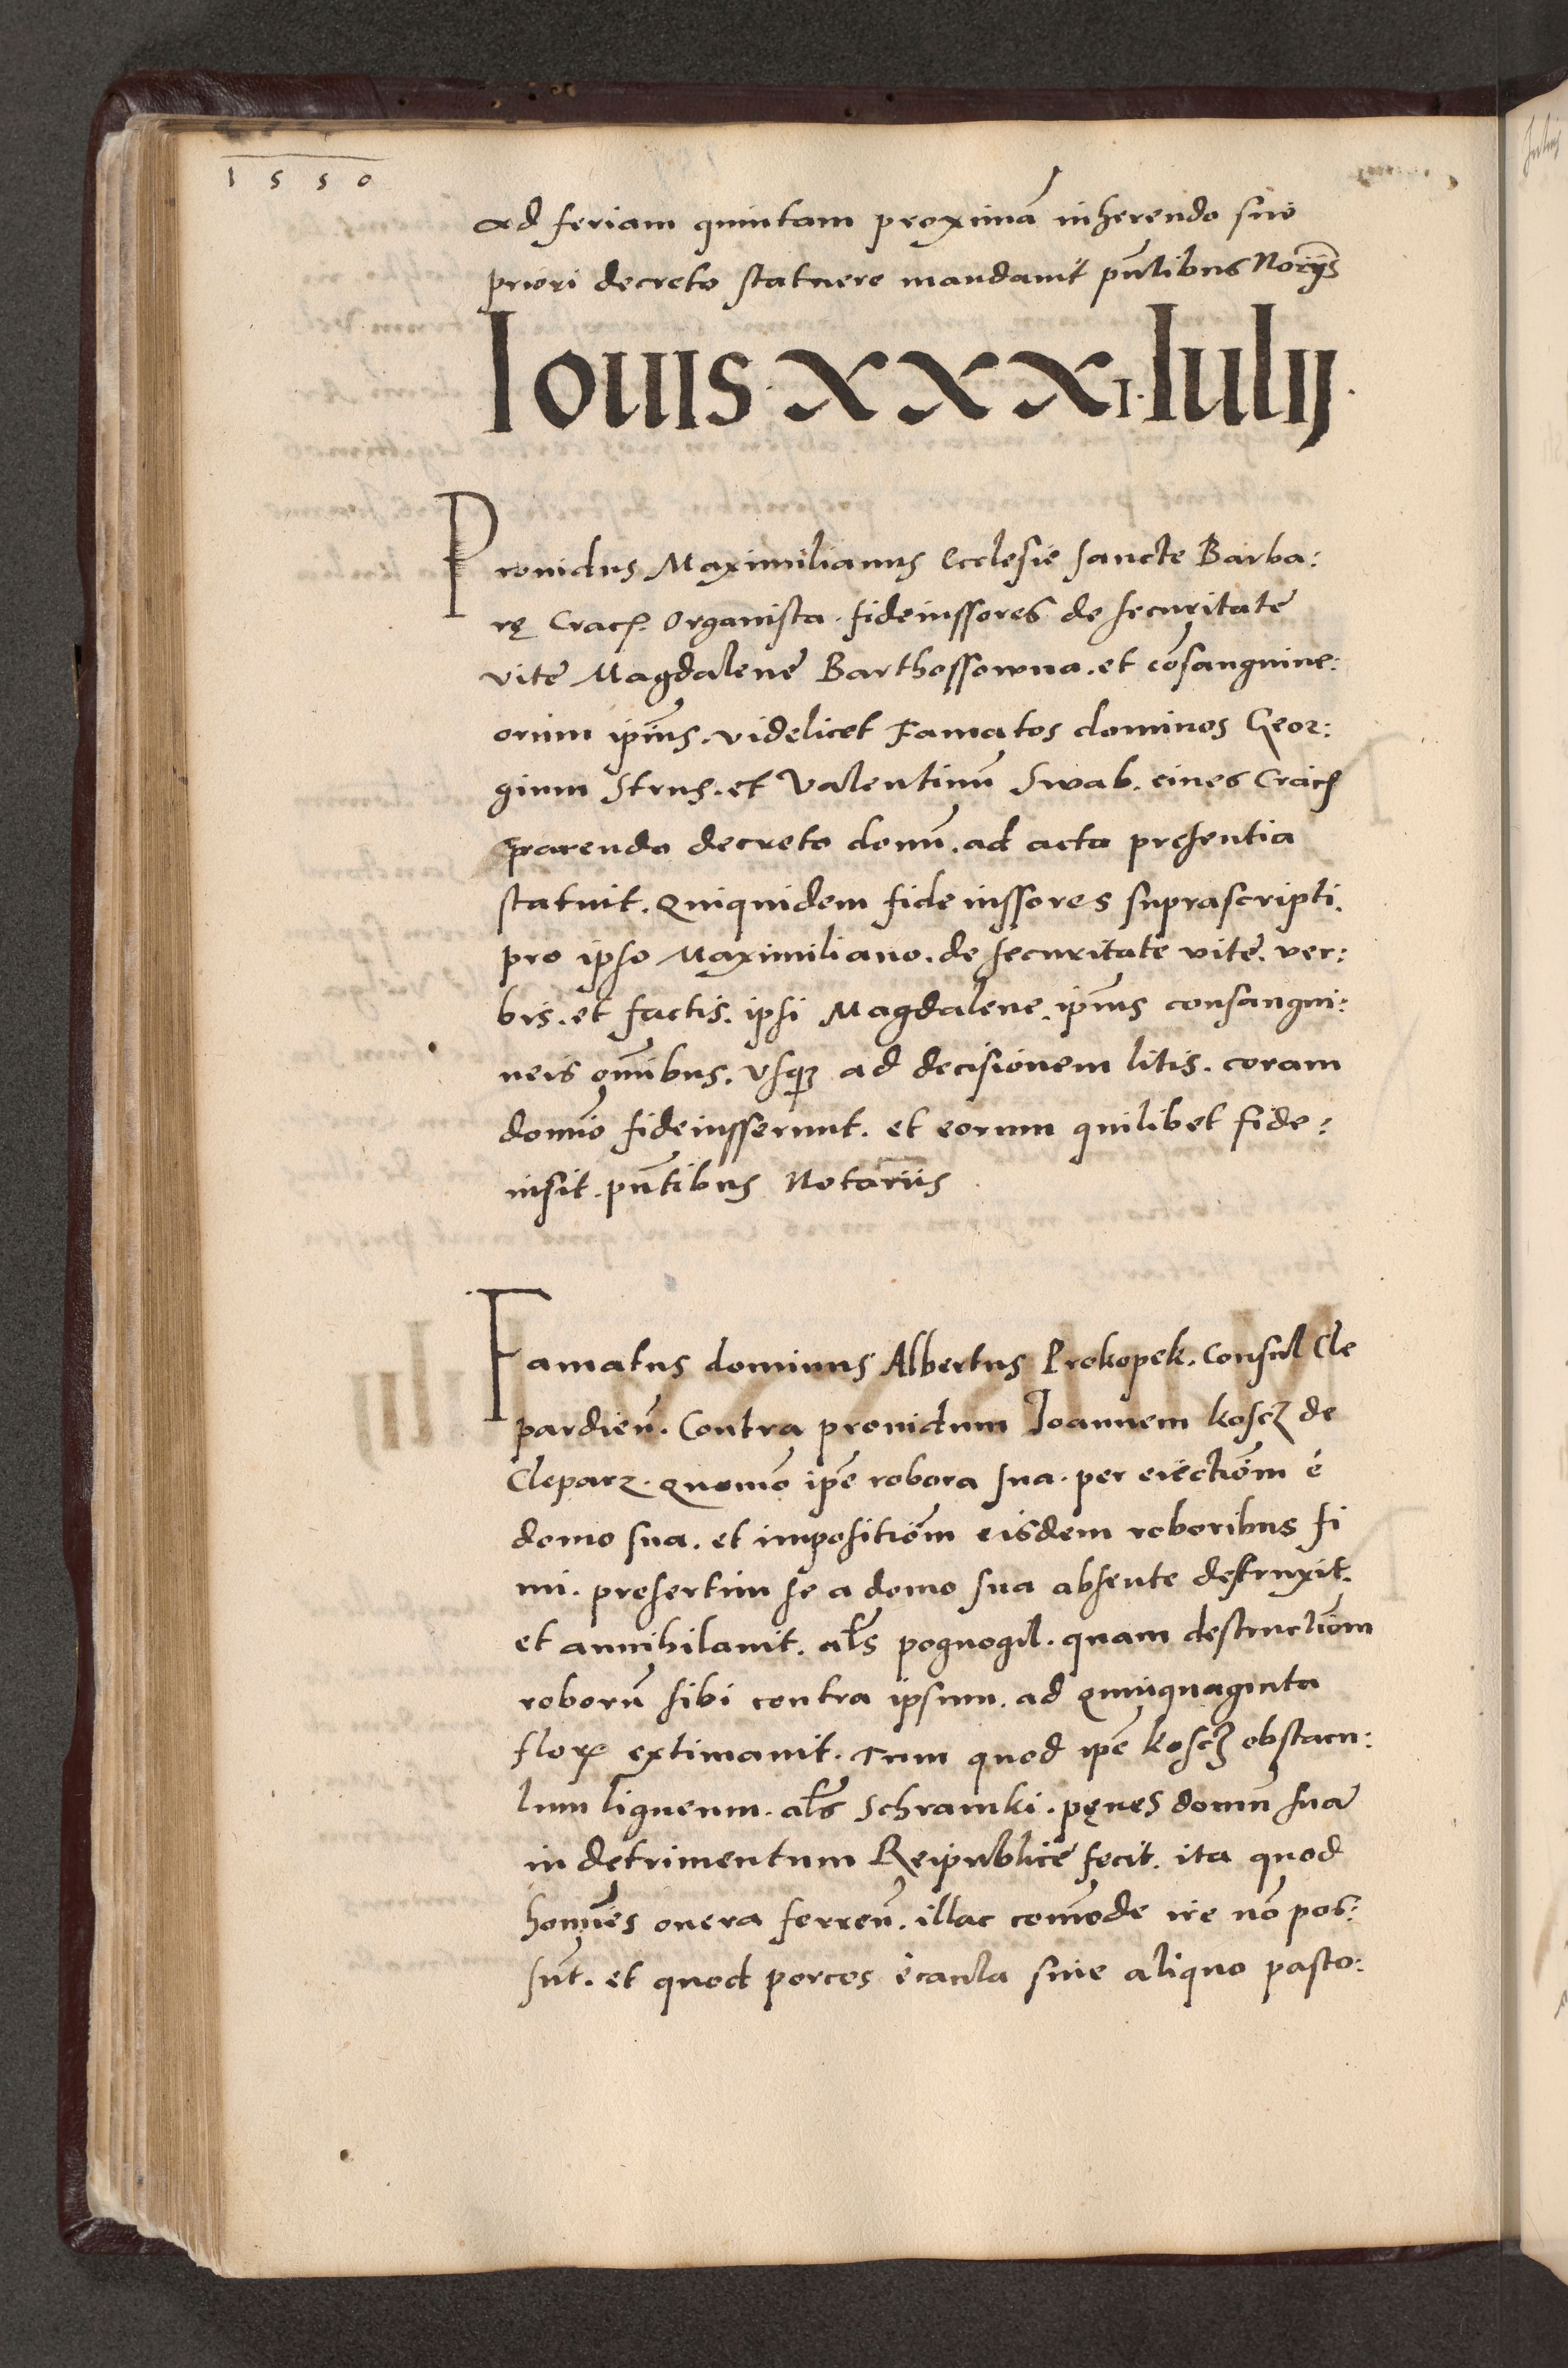 1550
ad feriam quintam proximā inherendo suo
priori decreto statuere mandauit pn̄tibus Norijs
Iouis XXXI. Iulij.
Prouidus Maximilianus Ecclesie sancte Barba:
rę Crac. Organista. fideiussores de securitate
vite Magdalene Barthossowna. et cōsanguine:
orum ipīus. videlicet Famatos dominos Geor:
gium Strus. et Valentinū Swab. ciues Crac
parendo decreto domī. ad acta presentia
statuit. Quiquidem fideiussores suprascripti.
pro ipso Maximiliano. de securitate vite. ver:
bis. et factis. ipsi Magdalene. ipīus consangui:
neis om̄ibus. vsqȝ ad decisionem litis. coram
domīo fideiusserunt. et eorum quilibet fide:
iusit. pn̄tibus Notariis
Famatus dominus Albertus Prokopek. Consul Cle
pardien̄. Contra prouidum Ioannem koscz de
Cleparz. quomō ipē robora sua. per eiectiōm è
domo sua. et impositiōm eisdem roboribus fi
mi. presertim se a domo sua absente destruxit.
et annihilauit. als̄ pognogil. quam destructiōm
roborū sibi contra ipsum. ad quinquaginta
flor extimauit. Tum quod ipē koscz obstacu:
lum ligneum. als̄ Schramki. pęnes domū suā
in detrimentum Reipublice fecit. ita quod
homīes onera ferren̄. illac com̄ode ire nō pos:
sūt. et quod porcos è caula sine aliquo pasto: